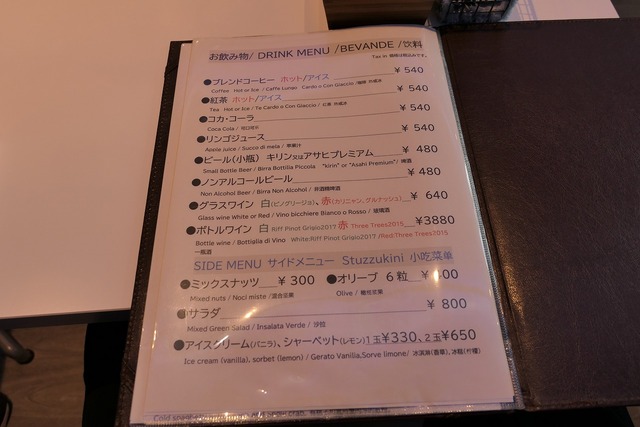 お飲み物/ DRINK MENU /BEVANDE /饮料
Tax in 価格は税込みです。
●ブレンドコーヒー ホット/アイス ¥ 540
Coffee Hot or Ice / Caffe Lungo Cardo o Con Giaccio /咖啡 热或冰
●紅茶 ホット/アイス ¥ 540
Tea Hot or Ice / Te Cardo o Con Giaccio / 红茶 热或冰
●コカ・コーラ ¥ 540
Coca Cola / 可口可乐
●リンゴジュース ¥ 540
Apple Juice / Succo di mela / 苹果汁
●ビール(小瓶) キリン又はアサヒプレミアム ¥ 480
Small Bottle Beer / Birra Bottilia Piccola "kirin" or "Asahi Premium"/ 啤酒
●ノンアルコールビール ¥ 480
Non Alcohol Beer / Birra Non Alcohol / 非酒精啤酒
●グラスワイン 白(ピングリージョ)、赤(カリニャン、グルナッシュ) ¥ 640
Glass wine White or Red / Vino bicchiere Bianco o Rosso / 玻璃酒
●ボトルワイン 白 Riff Pinot Grigio2017 赤 Three Trees2015 ¥3880
Bottle wine / Bottiglia di Vino White:Riff Pinot Grigio2017 /Red:Three Trees2015
一瓶酒
SIDE MENU サイドメニュー Stuzzukini 小吃菜单
●ミックスナッツ ¥ 300 ●オリーブ 6 粒 ¥ 00
Mixed nuts / Noci miste /混合坚果 Olive / 橄榄坚果
●サラダ ¥ 800
Mixed Green Salad / Insalata Verde / 沙拉
●アイスクリーム(バニラ)、シャーベット(レモン)1玉¥330、2玉¥650
Ice cream (vanilla), sorbet (lemon) / Gerato Vanilla,Sorve limone/ 冰淇淋(香草),冰糕(柠檬)